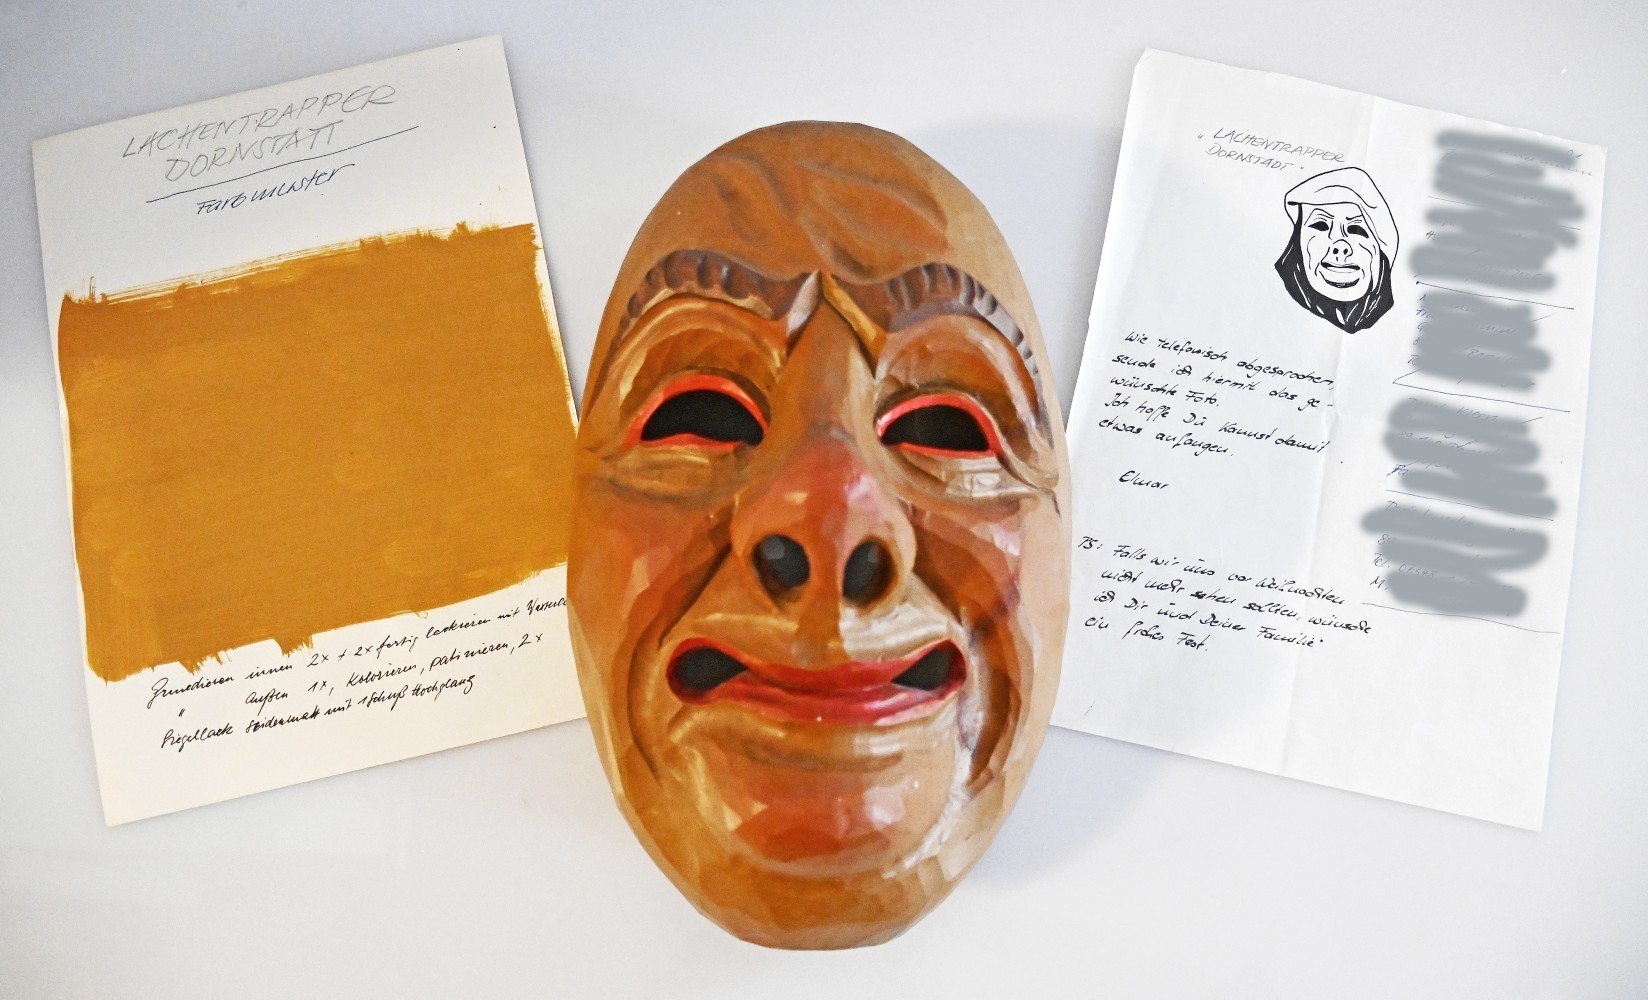 LACHENTRAPPER
DORNSTATT
Farbmuster
Grundieren innen 2x + 2x fertig lackieren mit
" außen 1x, kolorieren, patinieren, 2x
Riegellack Seidenmatt mit 1 Schuß Hochglanz
„LACHENTRAPPER
DORNSTADT"
Wie telefonisch abgesprochen,
sende ich hiermit das ge-
wünschte Foto.
Ich hoffe Du kannst damit
etwas anfangen.
Elmar
PS: Falls wir uns vor Weihnachten
nicht mehr sehen sollten, wünsche
ich Dir und Deiner Familie
ein frohes Fest.